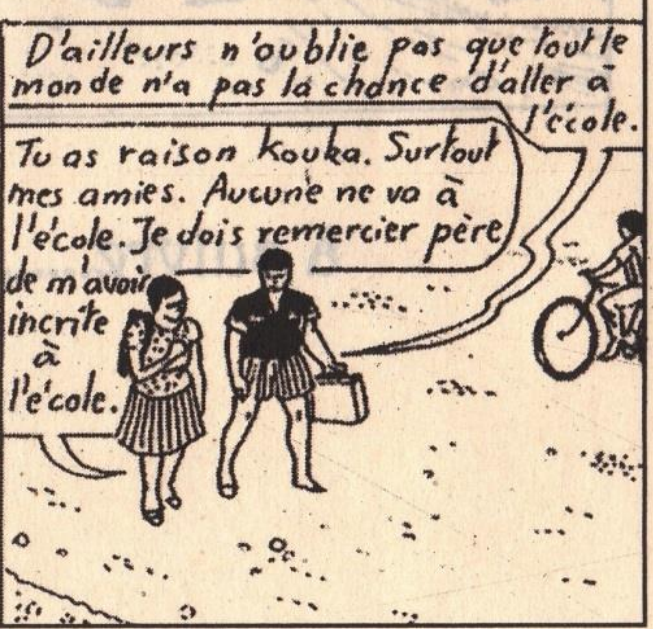 D'ailleurs n'oublie pas que tout le
monde n'a pas la chance d'aller à
l'école.
Tu as raison Kouka. Surtout
mes amies. Aucune ne va à
l'école. Je dois remercier père
de m'avoir
incrite
à
l'école.